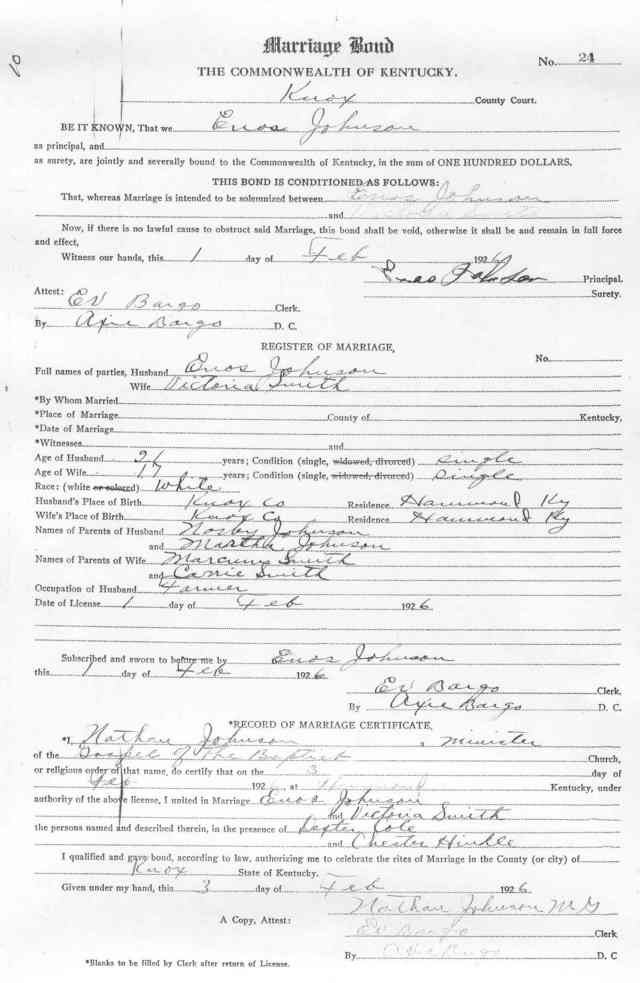 10
Marriage Bond
No. 24
THE COMMONWEALTH OF KENTUCKY.
Knox County Court.
BE IT KNOWN, That we Enos Johnson
as principal, and
as surety, are jointly and severally bound to the Commonwealth of Kentucky, in the sum of ONE HUNDRED DOLLARS.
THIS BOND IS CONDITIONED AS FOLLOWS:
That, whereas Marriage is intended to be solemnized between Enos Johnson
and Victoria Smith
Now, if there is no lawful cause to obstruct said Marriage, this bond shall be void, otherwise it shall be and remain in full force
and effect,
Witness our hands, this 1 day of Feb 1926
Enos Johnson Principal.
Attest: Surety.
EV Bargo Clerk.
By Axie Bargo D. C.
REGISTER OF MARRIAGE,
No.
Full names of parties, Husband Enos Johnson
Wife Victoria Smith
*By Whom Married
*Place of Marriage County of Kentucky,
*Date of Marriage
*Witnesses and
Age of Husband 26 years; Condition (single, widowed, divorced) single
Age of Wife 17 years; Condition (single, widowed, divorced) single
Race: (white or colored) White
Husband's Place of Birth Knox Co Residence Hammond Ky
Wife's Place of Birth Knox Co Residence Hammond Ky
Names of Parents of Husband Johnson
and Martha Johnson
Names of Parents of Wife Smith
and Carrie Smith
Occupation of Husband Farmer
Date of License 1 day of Feb 1926.
Subscribed and sworn to before me by Enos Johnson
this 1 day of Feb 1926
EV Bargo Clerk.
By Axie Bargo D. C.
*RECORD OF MARRIAGE CERTIFICATE,
*I, Nathan Johnson, minister
of the Gospel of the Baptist Church,
or religious order of that name, do certify that on the 3 day of
Feb 192 at Hammond Kentucky, under
authority of the above license, I united in Marriage Enos Johnson
and Victoria Smith
the persons named and described therein, in the presence of Cole
and Chester Hinkle
I qualified and gave bond, according to law, authorizing me to celebrate the rites of Marriage in the County (or city) of
Knox State of Kentucky.
Given under my hand, this 3 day of Feb 1926
Nathan Johnson M G
A Copy, Attest:
EV Bargo Clerk
By Axie Bargo D. C
*Blanks to be filled by Clerk after return of License.